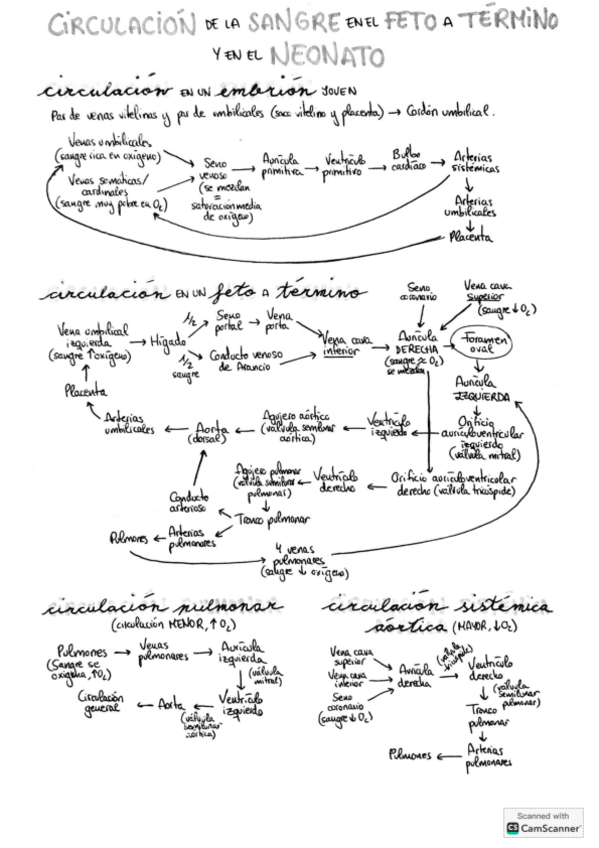 CIRCULACIÓN DE LA SANGRE EN EL FETO A TÉRMINO
Y EN EL NEONATO
circulación EN UN embrión JOVEN
Par de venas vitelinas y par de umbilicales (saco vitelino y placenta) → Cordón umbilical.
Venas umbilicales
(sangre rica en oxígeno)
Venas somáticas/
cardinales
(sangre muy pobre en O₂)
Seno
venoso
(se mezclan
=
saturación media
de oxígeno)
Aurícula
primitiva
Ventrículo
primitivo
Bulbo
cardíaco
Arterias
sistémicas
Arterias
umbilicales
Placenta
circulación EN UN feto A término
Seno
coronario
Vena cava
superior
(sangre ↓O₂)
Vena umbilical
izquierda
(sangre ↑oxígeno)
Hígado
1/2
Seno
portal
Vena
porta
1/2
sangre
Conducto venoso
de Arancio
Vena cava
inferior
Aurícula
DERECHA
(sangre ≈ O₂)
se mezclan
Foramen
oval
Aurícula
IZQUIERDA
Orificio
auriculoventricular
izquierdo
(válvula mitral)
Ventrículo
izquierdo
Agujero aórtico
(válvula semilunar
aórtica)
Aorta
(dorsal)
Arterias
umbilicales
Placenta
Orificio auriculoventricular
derecho (válvula tricúspide)
Ventrículo
derecho
Agujero pulmonar
(válvula semilunar
pulmonar)
Tronco pulmonar
Conducto
arterioso
Arterias
pulmonares
Pulmones
4 venas
pulmonares
(sangre ↓ oxígeno)
circulación pulmonar
(circulación MENOR, ↑O₂)
Pulmones
(Sangre se
oxigena, ↑O₂)
Venas
pulmonares
Aurícula
izquierda
(válvula
mitral)
Ventrículo
izquierdo
(válvula
semilunar
aórtica)
Aorta
Circulación
general
circulación sistémica
aórtica (MAYOR, ↓O₂)
Vena cava
superior
Vena cava
inferior
Seno
coronario
(sangre ↓O₂)
Aurícula
derecha
(válvula
tricúspide)
Ventrículo
derecho
(válvula
semilunar
pulmonar)
Tronco
pulmonar
Arterias
pulmonares
Pulmones
Scanned with
CS CamScanner